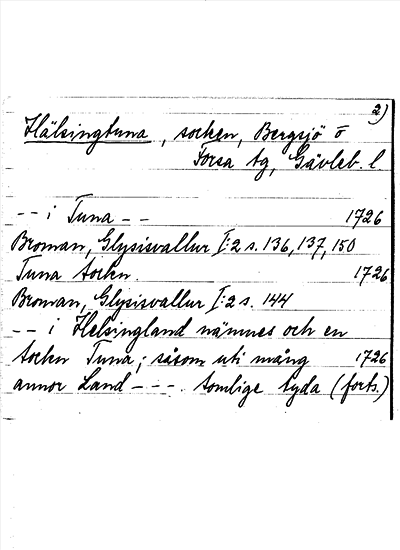 2)
Hälsingtuna, socken, Bergsjö o
Forsa tg, Gävleb. l.
-- i Tuna -- 1726
Broman, Glysisvallur I:2 s. 136, 137, 150
Tuna Socken. 1726
Broman, Glysisvallur I:2 s. 144
-- i Helsingland nämnes och en
Socken Tuna; såsom uti mång 1726
annor Land --- Somlige tyda (forts.)